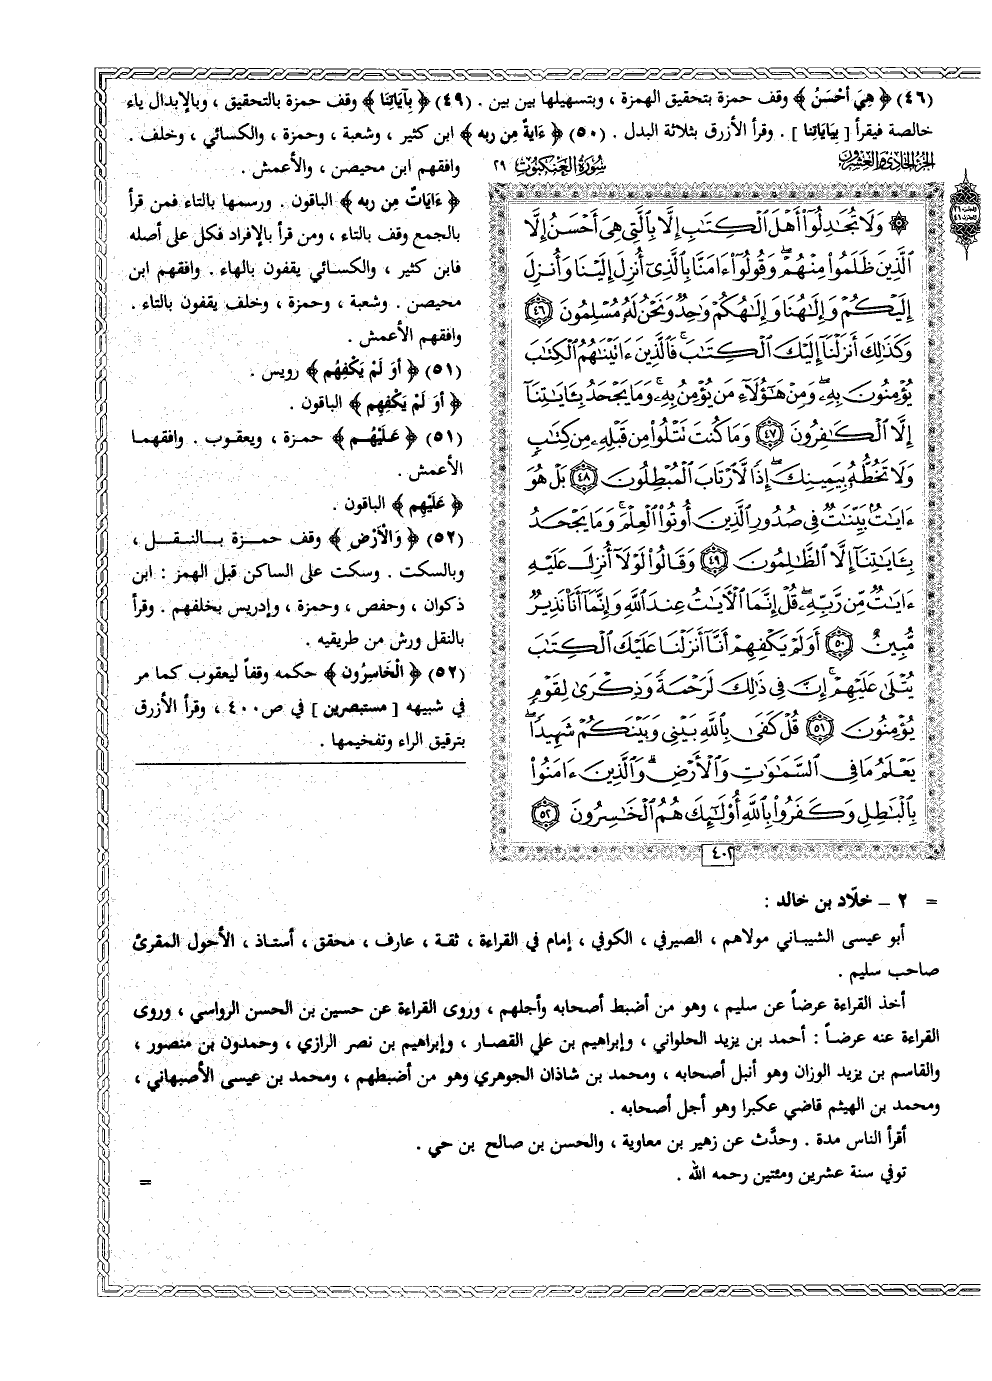 (٤٦) ﴿ هِيَ أَحْسَنُ ﴾ وقف حمزة بتحقيق الهمزة ، وبتسهيلها بين بين . (٤٩) ﴿ بِآيَاتِنَا ﴾ وقف حمزة بالتحقيق ، وبالإبدال ياء
خالصة فيقرأ [ بِيَايَاتِنا ] . وقرأ الأزرق بثلاثة البدل . (٥٠) ﴿ ءَايَةٌ مِن ربه ﴾ ابن كثير ، وشعبة ، وحمزة ، والكسائي ، وخلف .
وافقهم ابن محيصن ، والأعمش .
﴿ ءَايَاتٌ مِن ربه ﴾ الباقون . ورسمها بالتاء فمن قرأ
بالجمع وقف بالتاء ، ومن قرأ بالإفراد فكل على أصله
فابن كثير ، والكسائي يقفون بالهاء . وافقهم ابن
محيصن . وشعبة ، وحمزة ، وخلف يقفون بالتاء .
وافقهم الأعمش .
(٥١) ﴿ أوَ لَمْ يَكْفِهُم ﴾ رويس .
﴿ أوَ لَمْ يَكْفِهِم ﴾ الباقون .
(٥١) ﴿ عَلَيْهُم ﴾ حمزة ، ويعقوب . وافقهما
الأعمش .
﴿ عَلَيْهِم ﴾ الباقون .
(٥٢) ﴿ وَالأَرْضِ ﴾ وقف حمزة بالنقل ،
وبالسكت . وسكت على الساكن قبل الهمز : ابن
ذكوان ، وحفص ، وحمزة ، وإدريس بخلفهم . وقرأ
بالنقل ورش من طريقيه .
(٥٢) ﴿ الْخَاسِرُون ﴾ حكمه وقفاً ليعقوب كما مر
في شبيهه [ مستبصرين ] في ص٤٠٠ ، وقرأ الأزرق
بترقيق الراء وتفخيمها .
الجزء الحادي والعشرون
سورة العنكبوت ٢٩
۞ وَلَا تُجَٰدِلُوٓا۟ أَهْلَ ٱلْكِتَٰبِ إِلَّا بِٱلَّتِى هِىَ أَحْسَنُ إِلَّا
ٱلَّذِينَ ظَلَمُوا۟ مِنْهُمْ ۖ وَقُولُوٓا۟ ءَامَنَّا بِٱلَّذِىٓ أُنزِلَ إِلَيْنَا وَأُنزِلَ
إِلَيْكُمْ وَإِلَٰهُنَا وَإِلَٰهُكُمْ وَٰحِدٌ وَنَحْنُ لَهُۥ مُسْلِمُونَ ٤٦
وَكَذَٰلِكَ أَنزَلْنَآ إِلَيْكَ ٱلْكِتَٰبَ ۚ فَٱلَّذِينَ ءَاتَيْنَٰهُمُ ٱلْكِتَٰبَ
يُؤْمِنُونَ بِهِۦ ۖ وَمِنْ هَٰٓؤُلَآءِ مَن يُؤْمِنُ بِهِۦ ۚ وَمَا يَجْحَدُ بِـَٔايَٰتِنَآ
إِلَّا ٱلْكَٰفِرُونَ ٤٧ وَمَا كُنتَ تَتْلُوا۟ مِن قَبْلِهِۦ مِن كِتَٰبٍ
وَلَا تَخُطُّهُۥ بِيَمِينِكَ ۖ إِذًا لَّٱرْتَابَ ٱلْمُبْطِلُونَ ٤٨ بَلْ هُوَ
ءَايَٰتٌۢ بَيِّنَٰتٌ فِى صُدُورِ ٱلَّذِينَ أُوتُوا۟ ٱلْعِلْمَ ۚ وَمَا يَجْحَدُ
بِـَٔايَٰتِنَآ إِلَّا ٱلظَّٰلِمُونَ ٤٩ وَقَالُوا۟ لَوْلَآ أُنزِلَ عَلَيْهِ
ءَايَٰتٌ مِّن رَّبِّهِۦ ۖ قُلْ إِنَّمَا ٱلْـَٔايَٰتُ عِندَ ٱللَّهِ وَإِنَّمَآ أَنَا۠ نَذِيرٌ
مُّبِينٌ ٥٠ أَوَلَمْ يَكْفِهِمْ أَنَّآ أَنزَلْنَا عَلَيْكَ ٱلْكِتَٰبَ
يُتْلَىٰ عَلَيْهِمْ ۚ إِنَّ فِى ذَٰلِكَ لَرَحْمَةً وَذِكْرَىٰ لِقَوْمٍ
يُؤْمِنُونَ ٥١ قُلْ كَفَىٰ بِٱللَّهِ بَيْنِى وَبَيْنَكُمْ شَهِيدًا ۖ
يَعْلَمُ مَا فِى ٱلسَّمَٰوَٰتِ وَٱلْأَرْضِ ۗ وَٱلَّذِينَ ءَامَنُوا۟
بِٱلْبَٰطِلِ وَكَفَرُوا۟ بِٱللَّهِ أُو۟لَٰٓئِكَ هُمُ ٱلْخَٰسِرُونَ ٥٢
٤٠٢
= ٢ - خلّاد بن خالد :
أبو عيسى الشيباني مولاهم ، الصيرفي ، الكوفي ، إمام في القراءة ، ثقة ، عارف ، محقق ، أستاذ ، الأحول المقرئ
صاحب سليم .
أخذ القراءة عرضاً عن سليم ، وهو من أضبط أصحابه وأجلهم ، وروى القراءة عن حسين بن الحسن الرواسي ، وروى
القراءة عنه عرضاً : أحمد بن يزيد الحلواني ، وإبراهيم بن علي القصار ، وإبراهيم بن نصر الرازي ، وحمدون بن منصور ،
والقاسم بن يزيد الوزان وهو أنبل أصحابه ، ومحمد بن شاذان الجوهري وهو من أضبطهم ، ومحمد بن عيسى الأصبهاني ،
ومحمد بن الهيثم قاضي عكبرا وهو أجل أصحابه .
أقرأ الناس مدة . وحدَّث عن زهير بن معاوية ، والحسن بن صالح بن حي .
توفي سنة عشرين ومئتين رحمه الله .
=